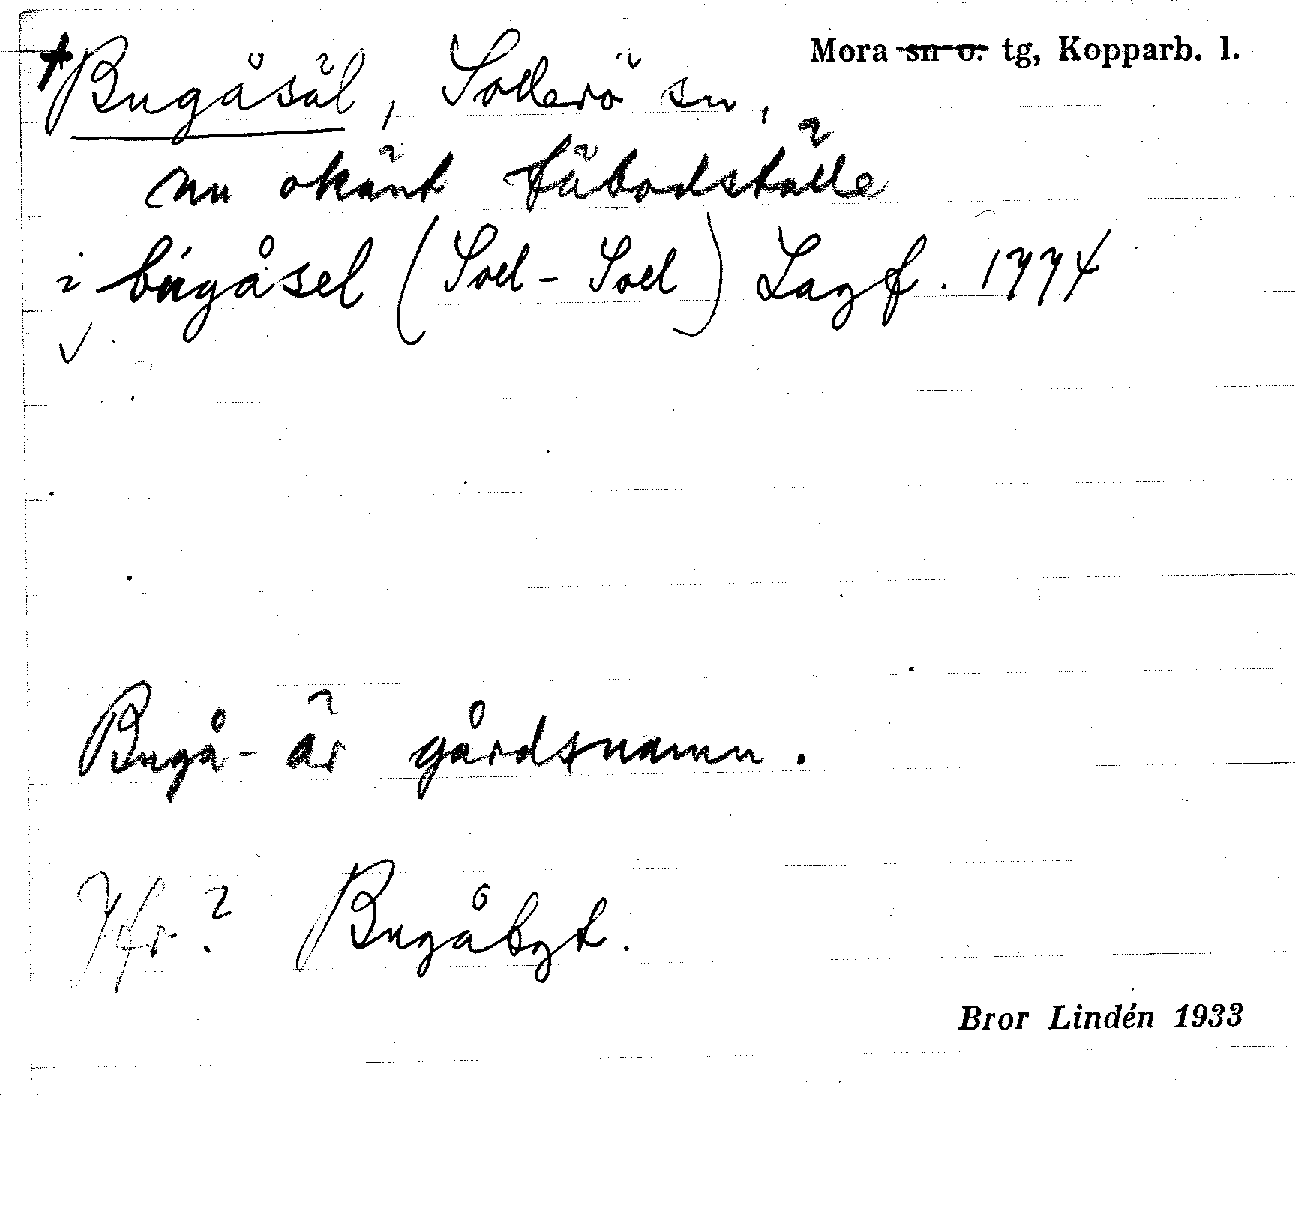 Mora sn o. tg, Kopparb. l.
†Bugåsäl, Sollerö sn,
nu okänt fäbodställe
i bugåsel (Soll-Soll) Lagf. 1774
Bugå- är gårdsnamn.
Jfr? Bugåbyt.
Bror Lindén 1933